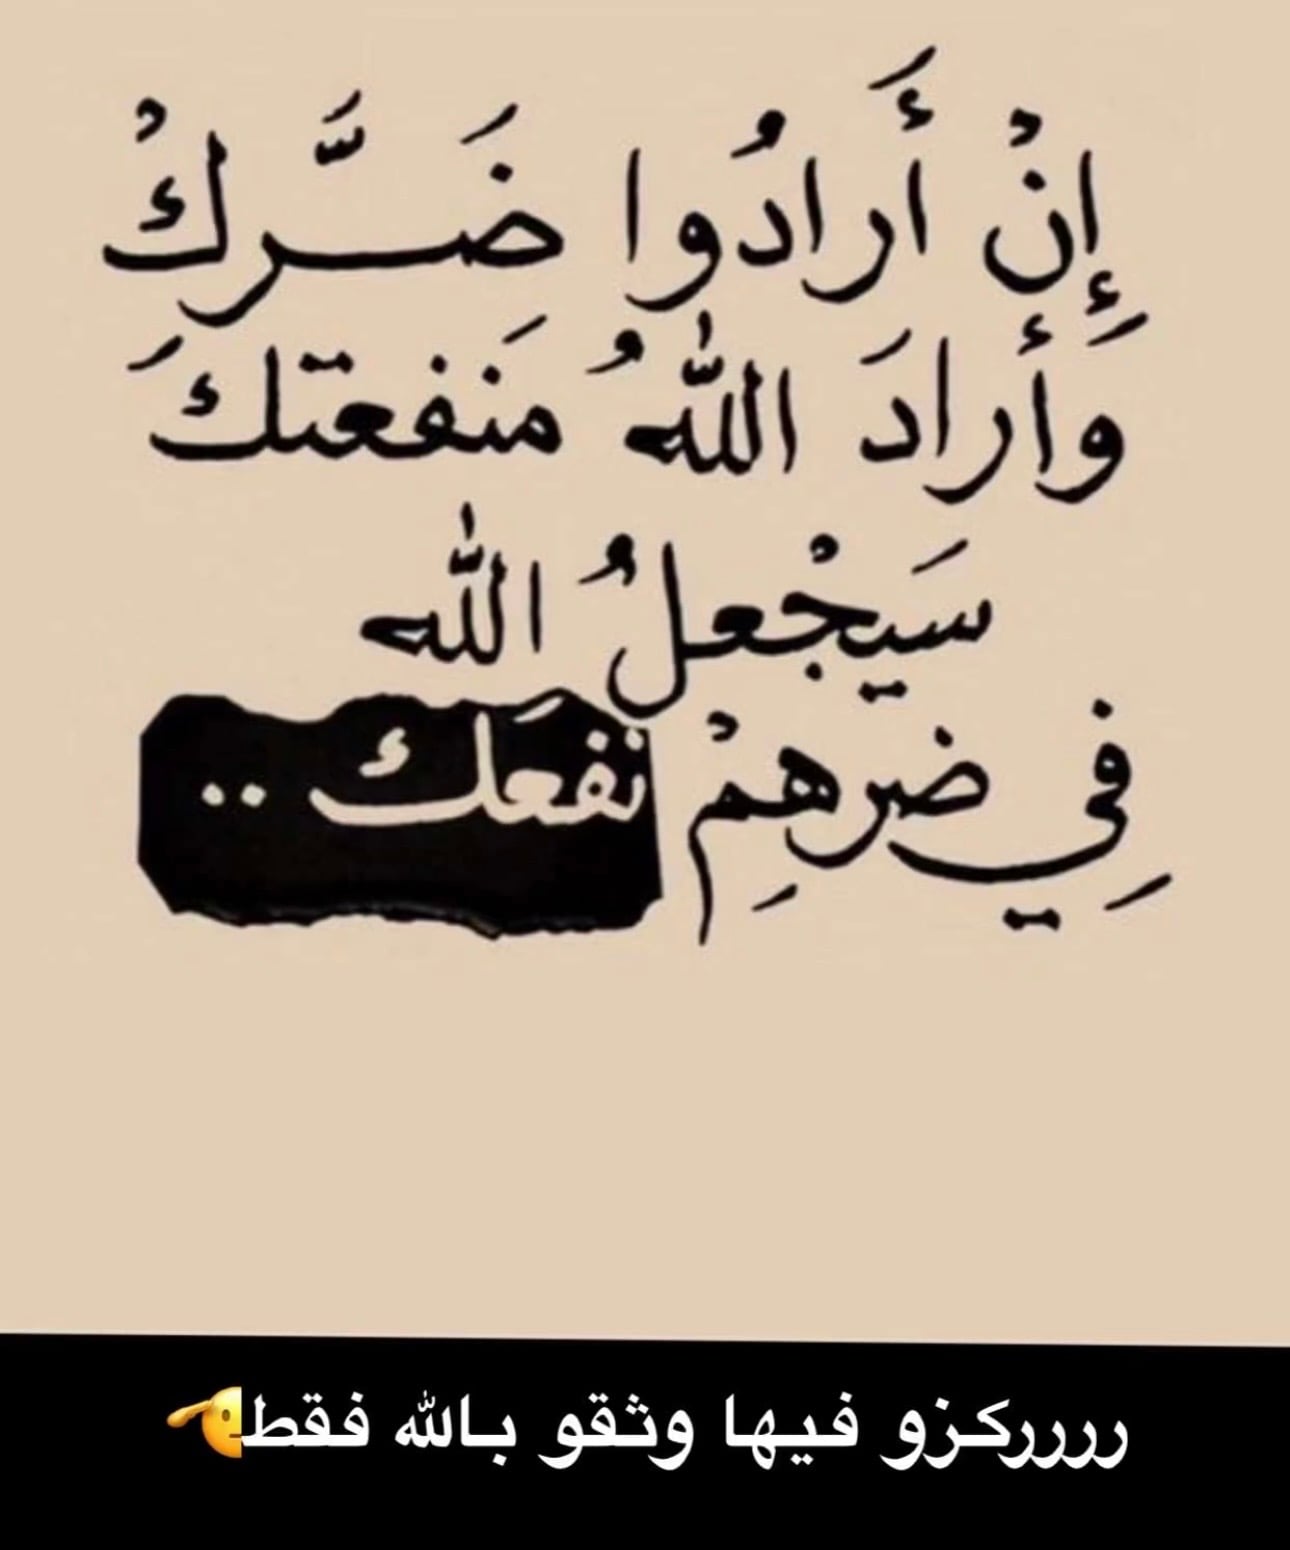 إِنْ أَرادُوا ضَرَّكْ
وَأرادَ اللّٰهُ مَنفعتكَ
سَيجْعلُ اللّٰه
فِي ضرهِمْ نفعَك ..
رررركزو فيها وثقو بالله فقط🫡